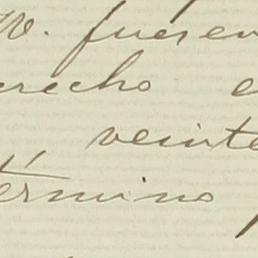 V. fuesen
recho e
veinte
érmino